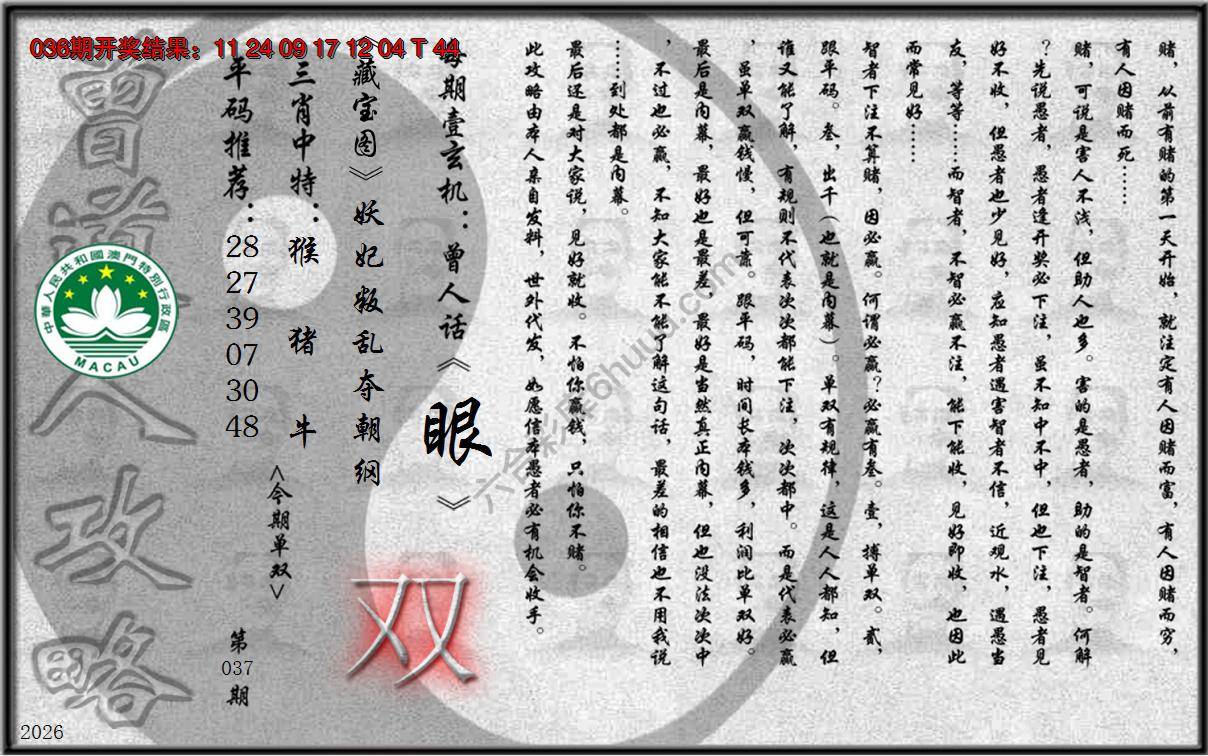 036期开奖结果：11 24 09 17 12 04 T 44
赌，从前有赌的第一天开始，就注定有人因赌而富，有人因赌而穷，
有人因赌而死……
赌，可说是害人不浅，但助人也多。害的是愚者，助的是智者。何解
？先说愚者，愚者逢开奖必下注，虽不知中不中，但也下注，愚者见
好不收，但愚者也少见好，应知愚者遇害智者不信，近观水，遇愚当
友，等等……而智者，不智必赢不注，能下能收，见好即收，也因此
而常见好……
智者下注不算赌，因必赢。何谓必赢？必赢有叁。壹，搏单双。贰，
跟平码。叁，出千（也就是内幕）。单双有规律，这是人人都知，但
谁又能了解，有规则不代表次次都能下注，次次都中。而是代表必赢
，虽单双赢钱慢，但可靠。跟平码，时间长本钱多，利润比单双好。
最后是内幕，最好也是最差，最好是当然真正内幕，但也没法次次中
，不过也必赢，不知大家能不能了解这句话，最差的相信也不用我说
……到处都是内幕。
最后还是对大家说，见好就收。不怕你赢钱，只怕你不赌。
此攻略由本人亲自发料，世外代发，如愿信本愚者必有机会收手。
每期壹玄机：曾人话《眼》
《藏宝图》妖妃叛乱夺朝纲
双
三肖中特：猴 猪 牛
<今期单双>
平码推荐：28 27 39 07 30 48
第037期
曾道人攻略
中華人民共和國澳門特別行政區
MACAU
六合彩库6huuu.com
2026